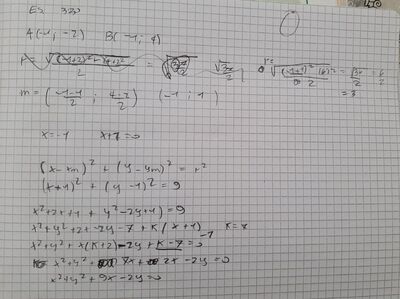 Es 330
A(-1, -2)   B(-1; 4)
r = √((-1+2)²+(4+2)²)/2 =   r = √((-1+1)² (6)²)/2 = 6/2
= 3
m = ((-1-1)/2 ; (4-2)/2)   (-1 ; 1)
x=-1   x+1=0
(x-xm)² + (y-ym)² = r²
(x+1)² + (y-1)² = 9
x²+2x+1 + y²-2y+1) = 9
x²+y²+2x-2y-7 + k(x+1)   k=7
x²+y²+x(k+2)-2y+k-7=0
x²+y²+ 7x+ 2x-2y=0
x²+y²+9x-2y=0